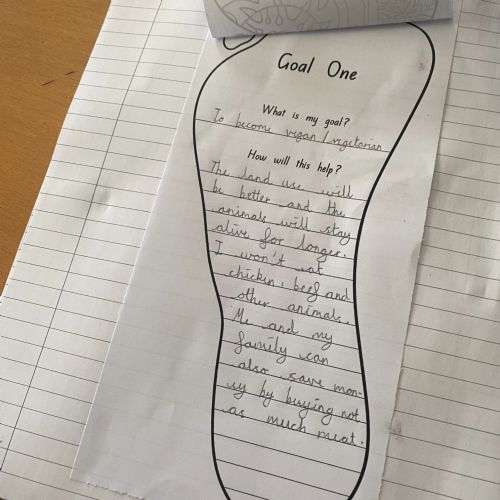 Goal One
What is my goal?
To become vegan / vegetarian
How will this help?
The land use will
be better and the
animals will stay
alive for longer.
I won't eat
chicken, beef and
other animals.
Me and my
family can
also save mon-
ey by buying not
as much meat.